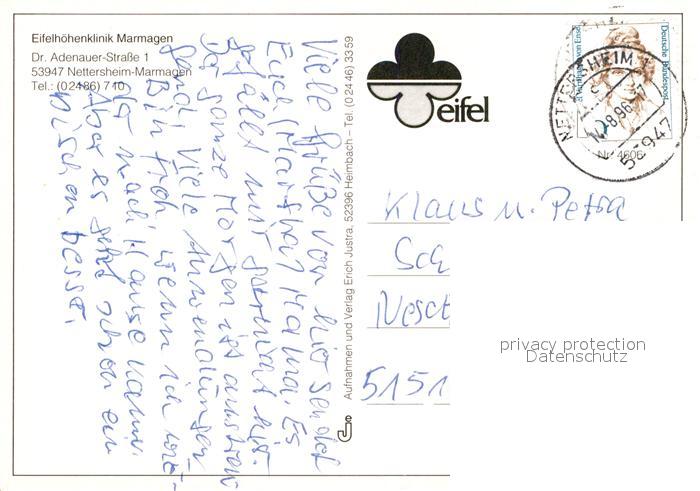 Eifelhöhenklinik Marmagen
Dr. Adenauer-Straße 1
53947 Nettersheim-Marmagen
Tel.: (02486) 710
Viele Grüße von hier sendet
Euch Mama. Es
gefällt mir hier.
Der ganze Morgen ist
Viele Anwendungen.
Bin froh, wenn ich
nach Hause kann.
Aber es geht schon ein
bischen besser.
Aufnahmen und Verlag Erich Justra, 52396 Heimbach – Tel. (02446) 3359
eifel
Deutsche Bundespost
NETTERSHEIM 1
8.96
53947
Nr. 4606
Klaus u. Petra
Sc
Nesc
5151
privacy protection
Datenschutz